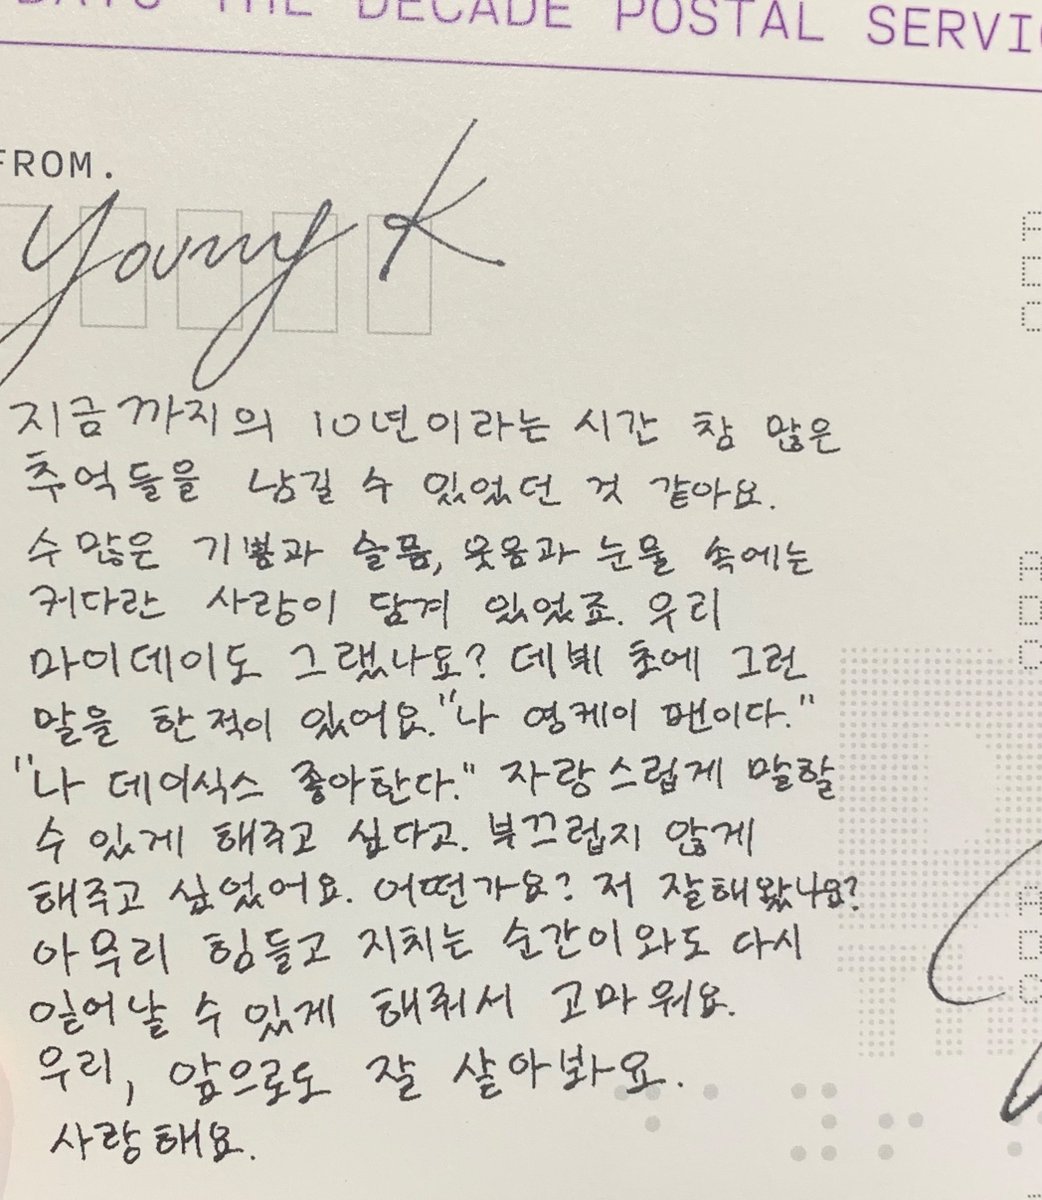 THE DECADE POSTAL
FROM.
Young K
지금까지의 10년이라는 시간 참 많은
추억들을 남길 수 있었던 것 같아요.
수 많은 기쁨과 슬픔, 웃음과 눈물 속에는
커다란 사랑이 담겨 있었죠. 우리
마이데이도 그랬나요? 데뷔 초에 그런
말을 한 적이 있어요. "나 영케이 팬이다."
"나 데이식스 좋아한다." 자랑스럽게 말할
수 있게 해주고 싶다고. 부끄럽지 않게
해주고 싶었어요. 어떤가요? 저 잘해왔나요?
아무리 힘들고 지치는 순간이 와도 다시
일어날 수 있게 해줘서 고마워요.
우리, 앞으로도 잘 살아봐요.
사랑해요.